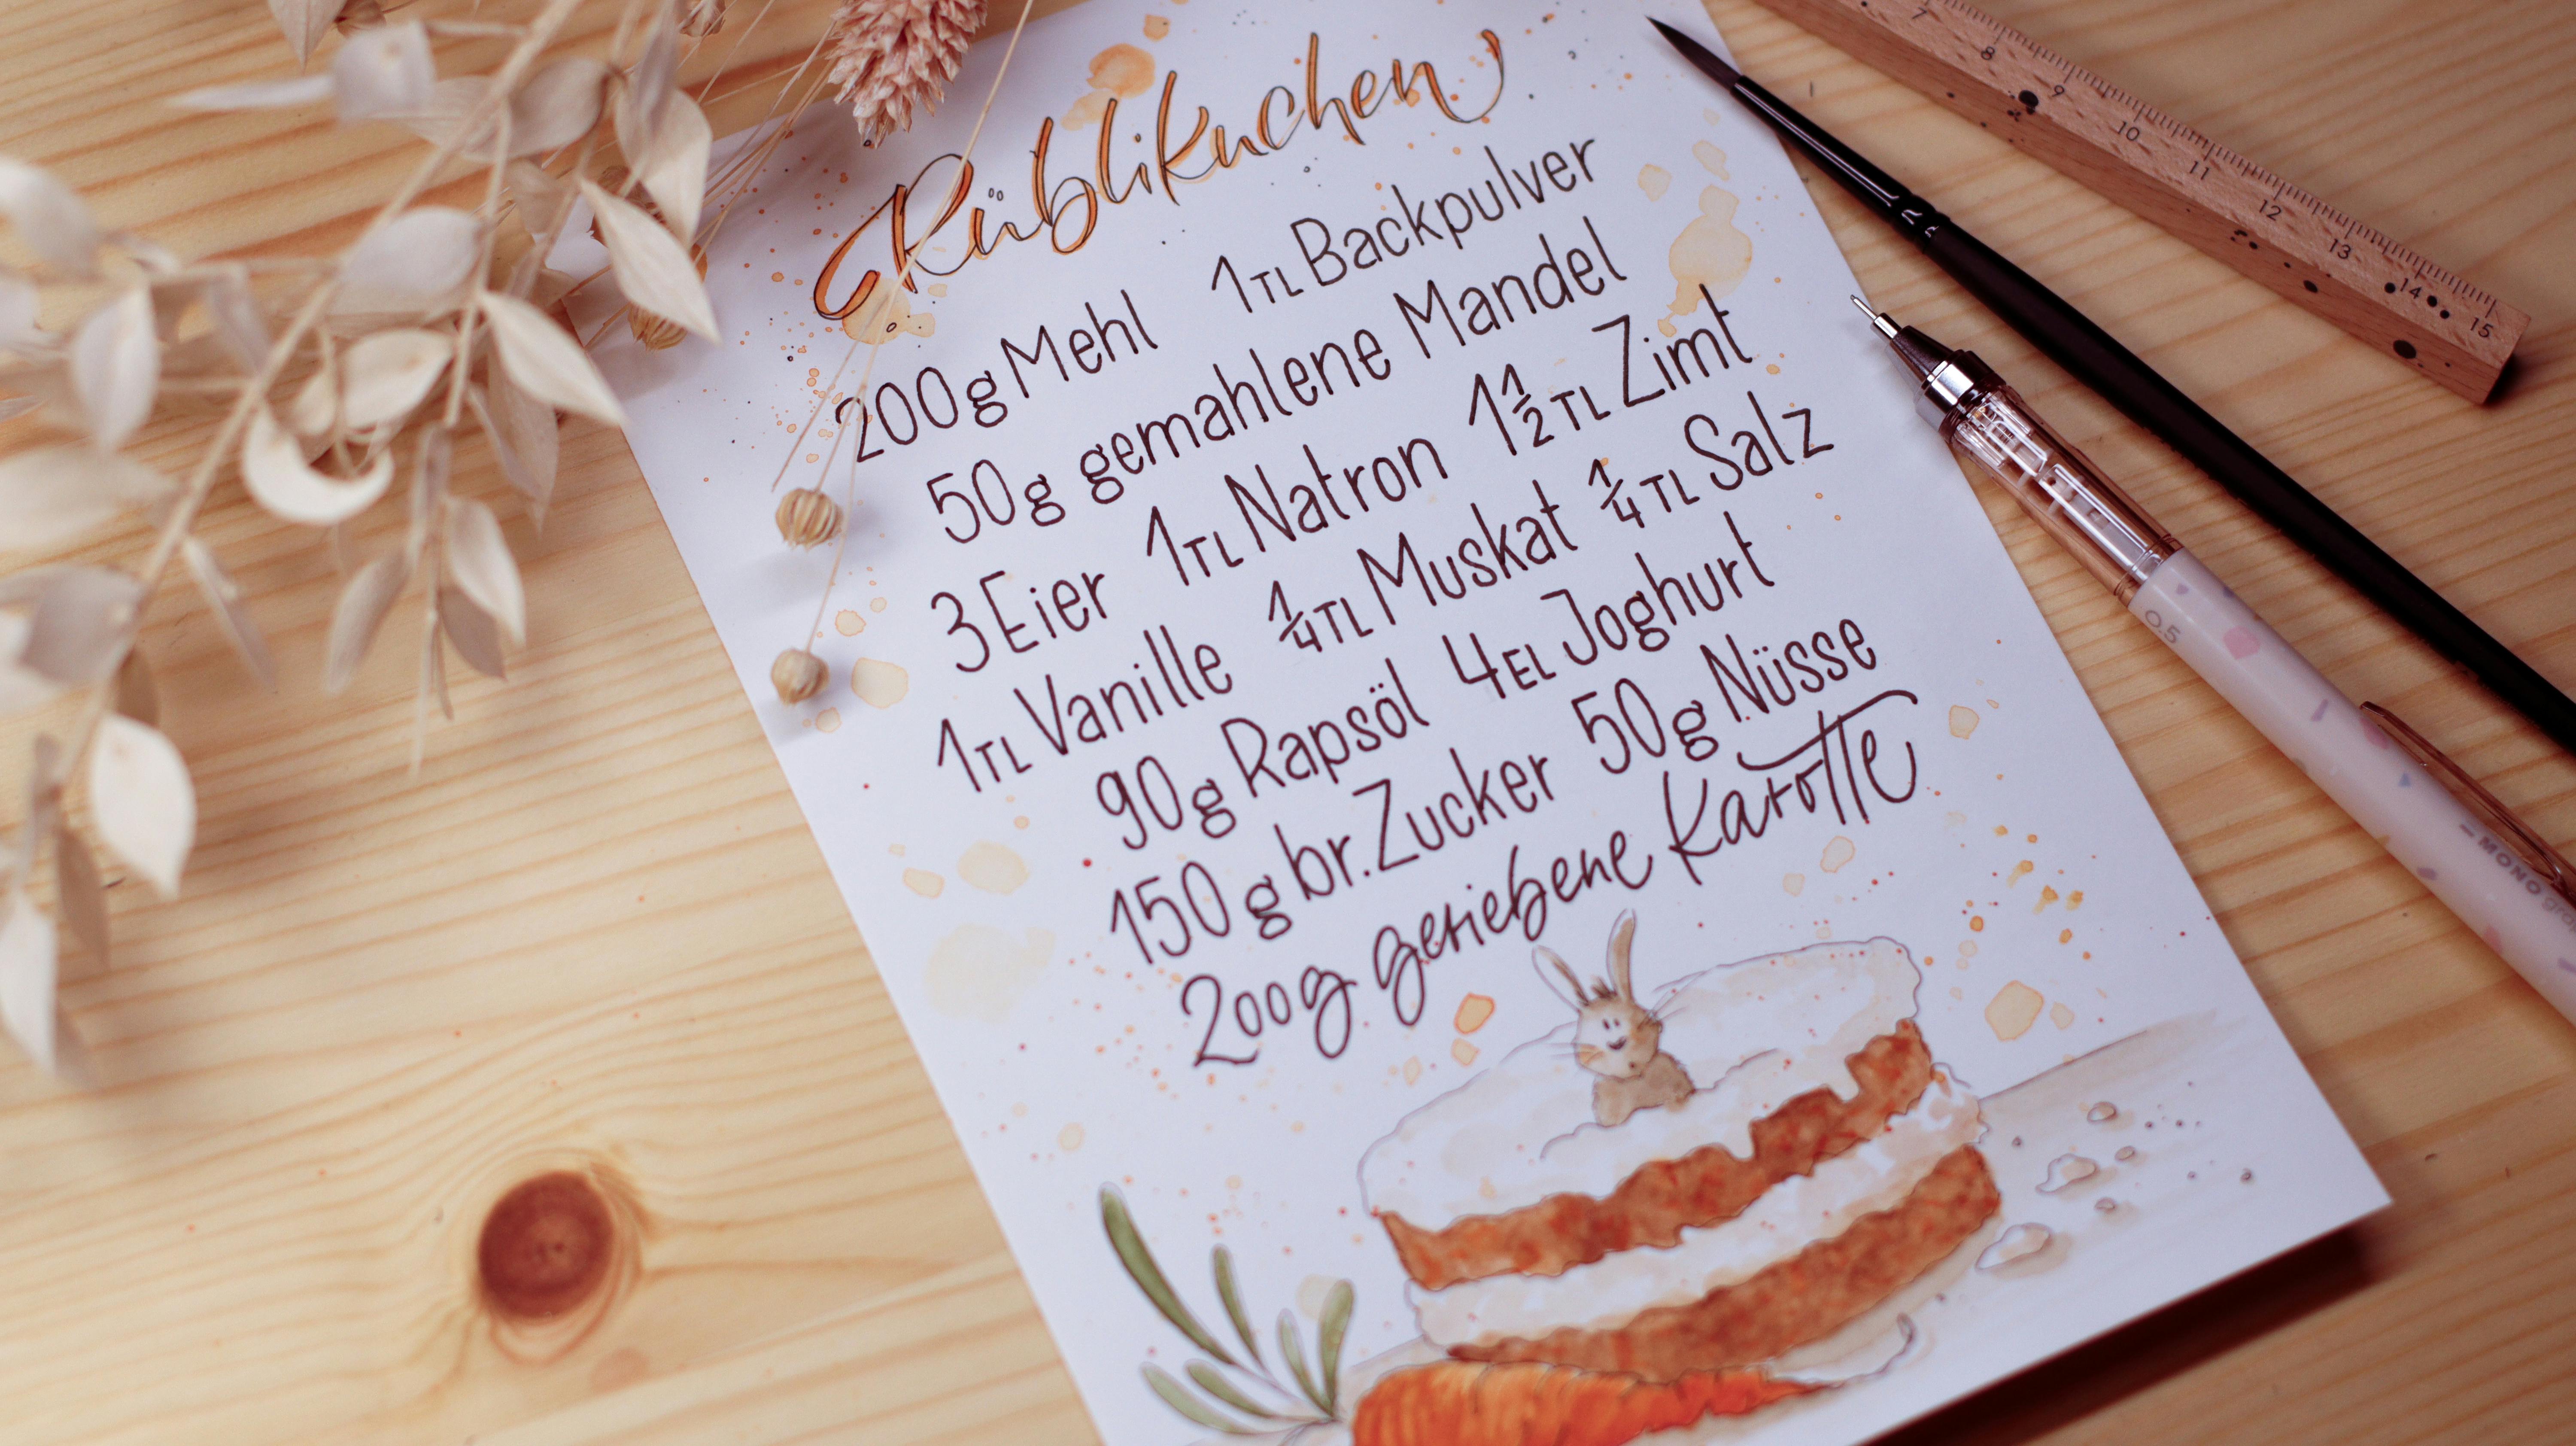 Rüblikuchen
200g Mehl 1TL Backpulver
50g gemahlene Mandel
3 Eier 1TL Natron 1 1/2 TL Zimt
1TL Vanille 1/4 TL Muskat 1/4 TL Salz
90g Rapsöl 4EL Joghurt
150g br. Zucker 50g Nüsse
200g geriebene Karotte
7 8 9 10 11 12 13 14 15
0.5
MONO